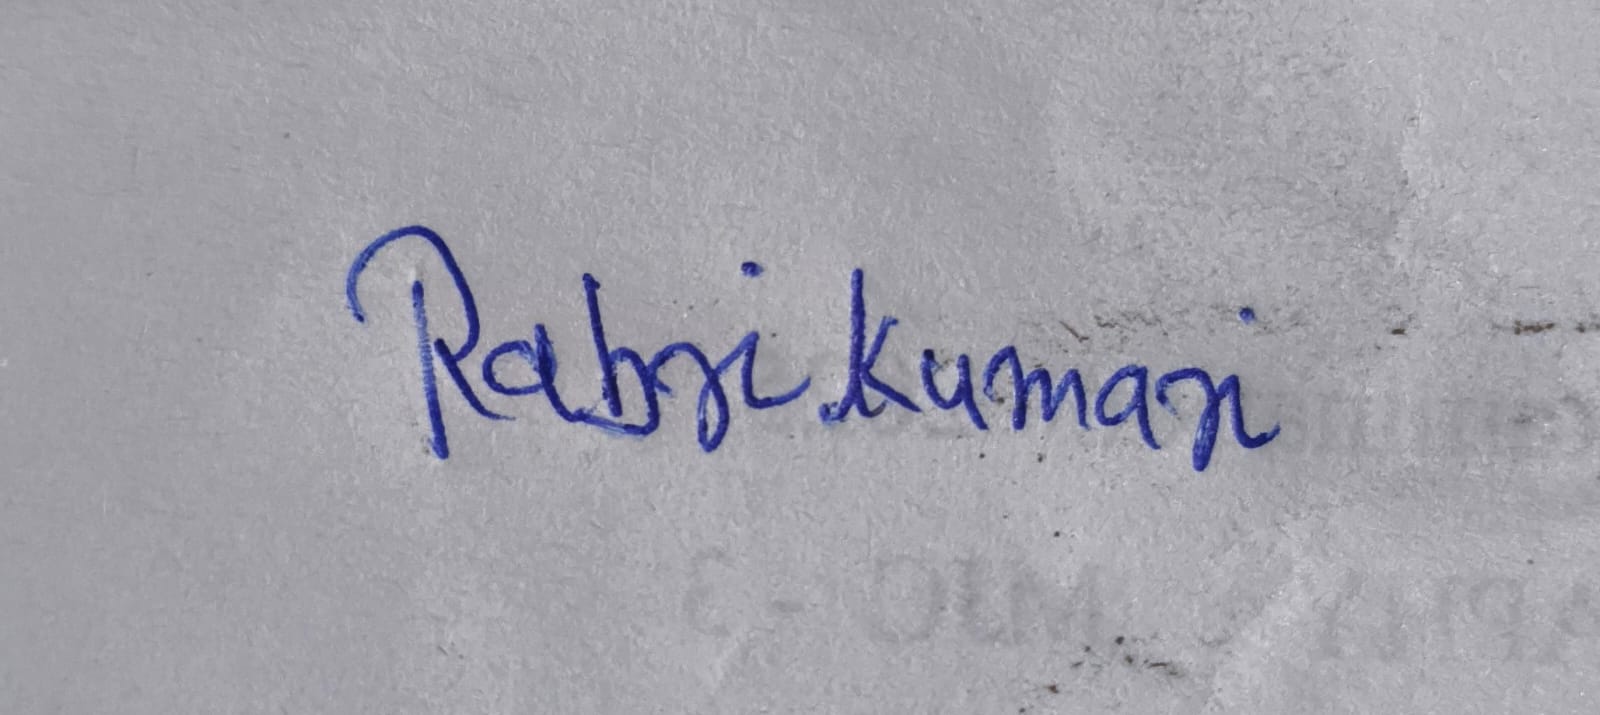 Rabri Kumari